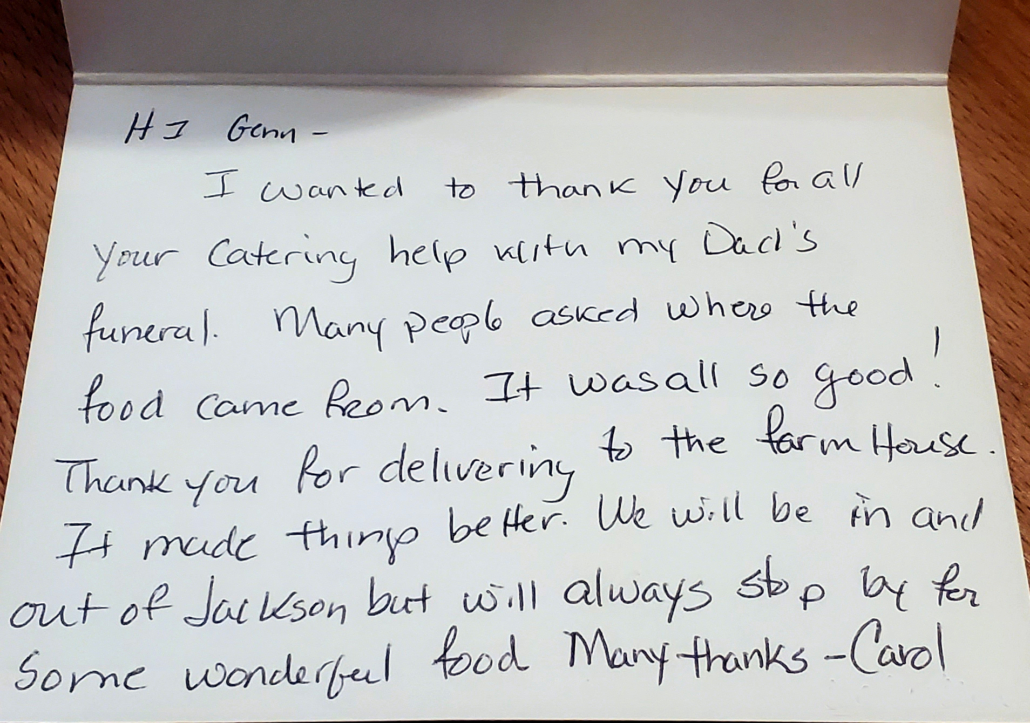 HI Genn -
I wanted to thank you for all
your Catering help with my Dad's
funeral. Many people asked where the
food came from. It was all so good!
Thank you for delivering to the farm House.
It made things better. We will be in and
out of Jackson but will always stop by for
Some wonderful food Many thanks - Carol